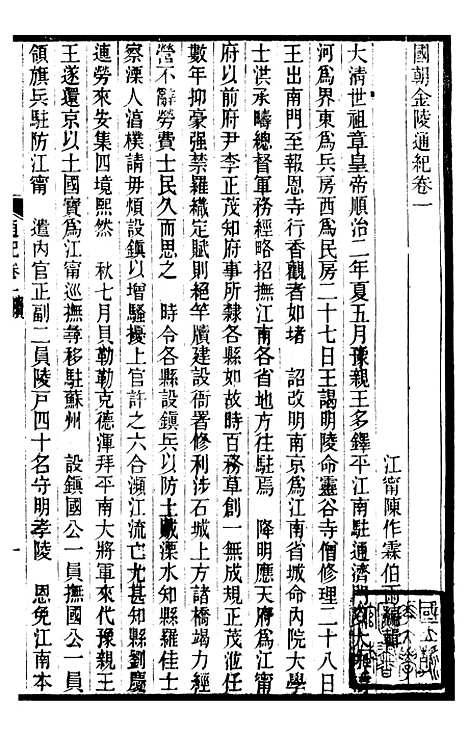 國朝金陵通紀卷一
江甯陳作霖伯雨編輯
大清世祖章皇帝順治二年夏五月豫親王多鐸平江南駐通濟門以大
河爲界東爲兵房西爲民房二十七日王謁明陵命靈谷寺僧修理二十八日
王出南門至報恩寺行香觀者如堵 詔改明南京爲江南省城命内院大學
士洪承疇總督軍務經略招撫江南各省地方往駐焉 降明應天府爲江甯
府以前府尹李正茂知府事所隸各縣如故時百務草創一無成規正茂蒞任
數年抑豪强禁羅織定賦則絕竿牘建設衙署修利涉石城上方諸橋竭力經
營不辭勞費士民久而思之 時令各縣設鎮兵以防土賊溧水知縣羅佳士
察溧人湻樸請毋煩設鎮以增騷擾上官許之六合瀕江流亡尤甚知縣劉慶
連勞來安集四境熙然 秋七月貝勒勒克德渾拜平南大將軍來代豫親王
王遂還京以土國寶爲江甯巡撫尋移駐蘇州 設鎮國公一員撫國公一員
領旗兵駐防江甯 遣内官正副二員陵戸四十名守明孝陵 恩免江南本
通紀卷一
一